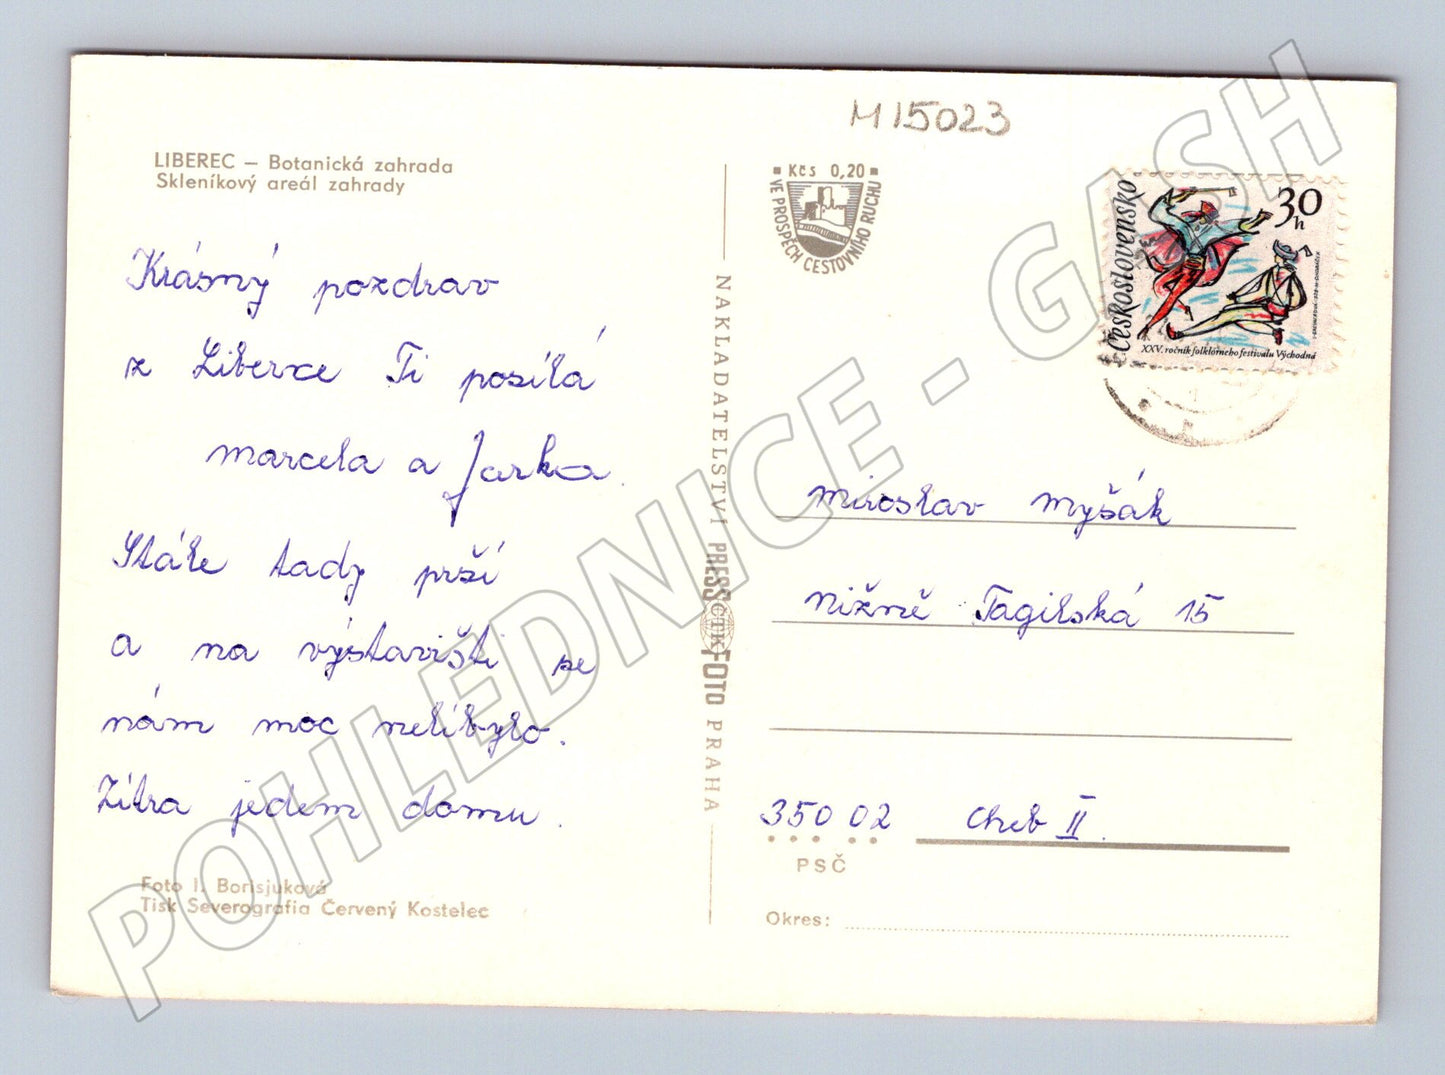 M15023
LIBEREC – Botanická zahrada
Skleníkový areál zahrady
Krásný pozdrav
z Liberce Ti posílá
marcela a Jarka.
Stále tady prší
a na výstavišti se
nám moc nelíbylo.
Zítra jedem domu.
Foto I. Borisjuková
Tisk Severografia Červený Kostelec
NAKLADATELSTVÍ PRESSFOTO PRAHA
ČTK
Kčs 0,20
VE PROSPĚCH CESTOVNÍHO RUCHU
Československo
30 h
XXV. ročník folklorneho festivalu Východná
Miroslav Myšák
Nižně Tagilská 15
350 02 Cheb II.
PSČ
Okres:
POHLEDNICE - GASH